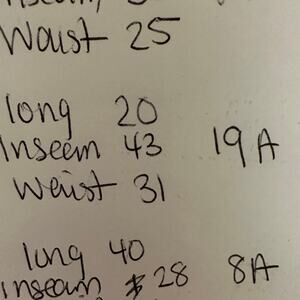 Waist 25
long 20
Inseem 43 19A
Weist 31
lung 40
inseam 28 8A